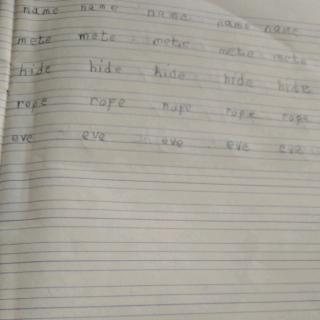 name name name name name
mete mete mete mete mete
hide hide hide hide hide
rope rope rope rope rope
eve eve eve eve eve